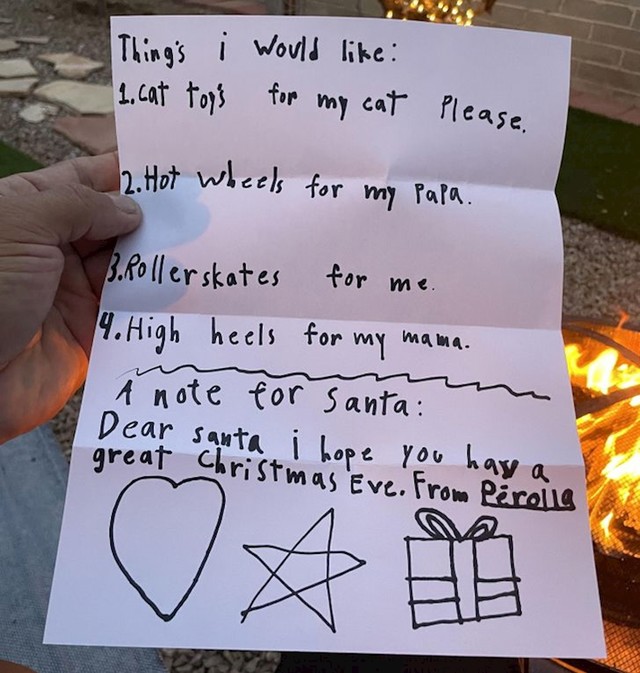 Thing's i would like:
1. cat toy's for my cat Please.
2. Hot wheels for my PaPa.
3. Rollerskates for me.
4. High heels for my mama.
A note for santa:
Dear santa i hope you hav a
great Christmas Eve. From Pérolla